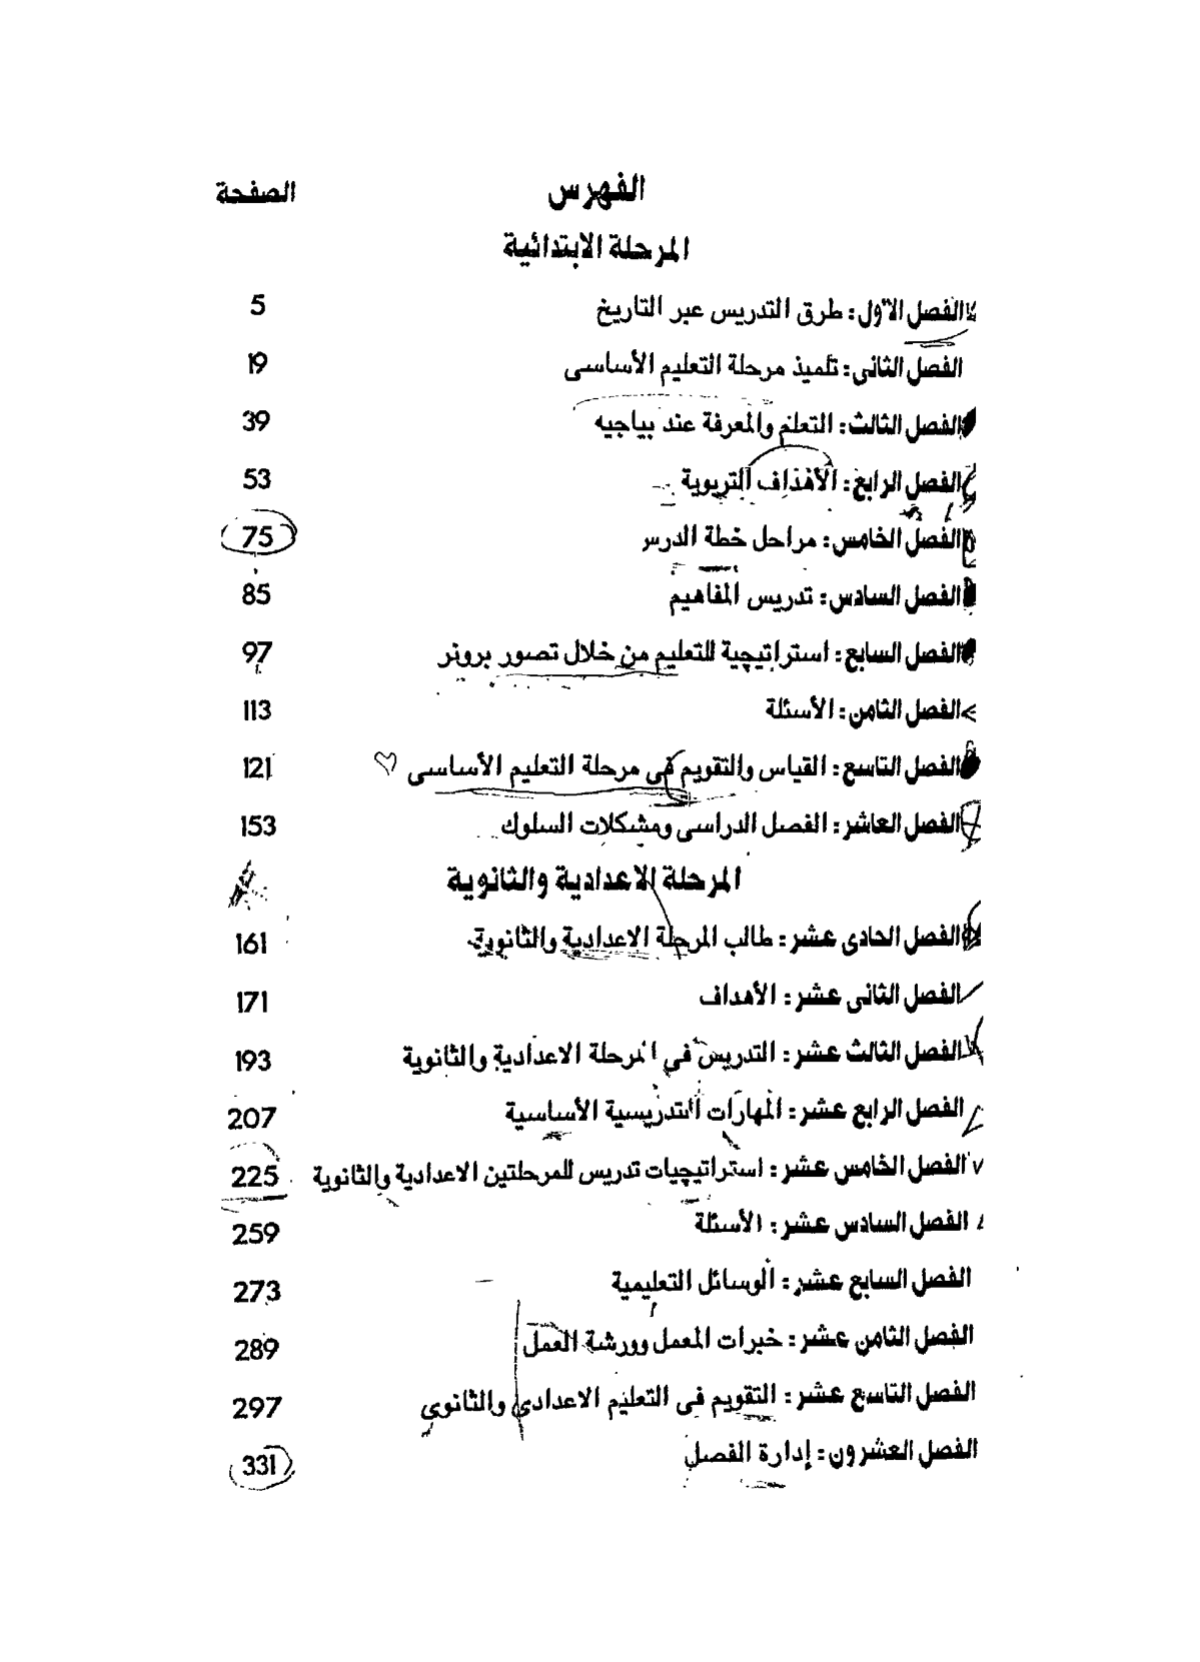 الفهرس الصفحة
المرحلة الابتدائية
الفصل الأول: طرق التدريس عبر التاريخ 5
الفصل الثانى: تلميذ مرحلة التعليم الأساسى 19
الفصل الثالث: التعلم والمعرفة عند بياجيه 39
الفصل الرابع: الأهداف التربوية 53
الفصل الخامس: مراحل خطة الدرس 75
الفصل السادس: تدريس المفاهيم 85
الفصل السابع: استراتيجية للتعليم من خلال تصور برونر 97
الفصل الثامن: الأسئلة 113
الفصل التاسع: القياس والتقويم فى مرحلة التعليم الأساسى 121
الفصل العاشر: الفصل الدراسى ومشكلات السلوك 153
المرحلة الاعدادية والثانوية
الفصل الحادى عشر: طالب المرحلة الاعدادية والثانوية 161
الفصل الثانى عشر: الأهداف 171
الفصل الثالث عشر: التدريس فى المرحلة الاعدادية والثانوية 193
الفصل الرابع عشر: المهارات التدريسية الأساسية 207
الفصل الخامس عشر: استراتيجيات تدريس للمرحلتين الاعدادية والثانوية 225
الفصل السادس عشر: الأسئلة 259
الفصل السابع عشر: الوسائل التعليمية 273
الفصل الثامن عشر: خبرات المعمل وورشة العمل 289
الفصل التاسع عشر: التقويم فى التعليم الاعدادى والثانوى 297
الفصل العشرون: إدارة الفصل 331